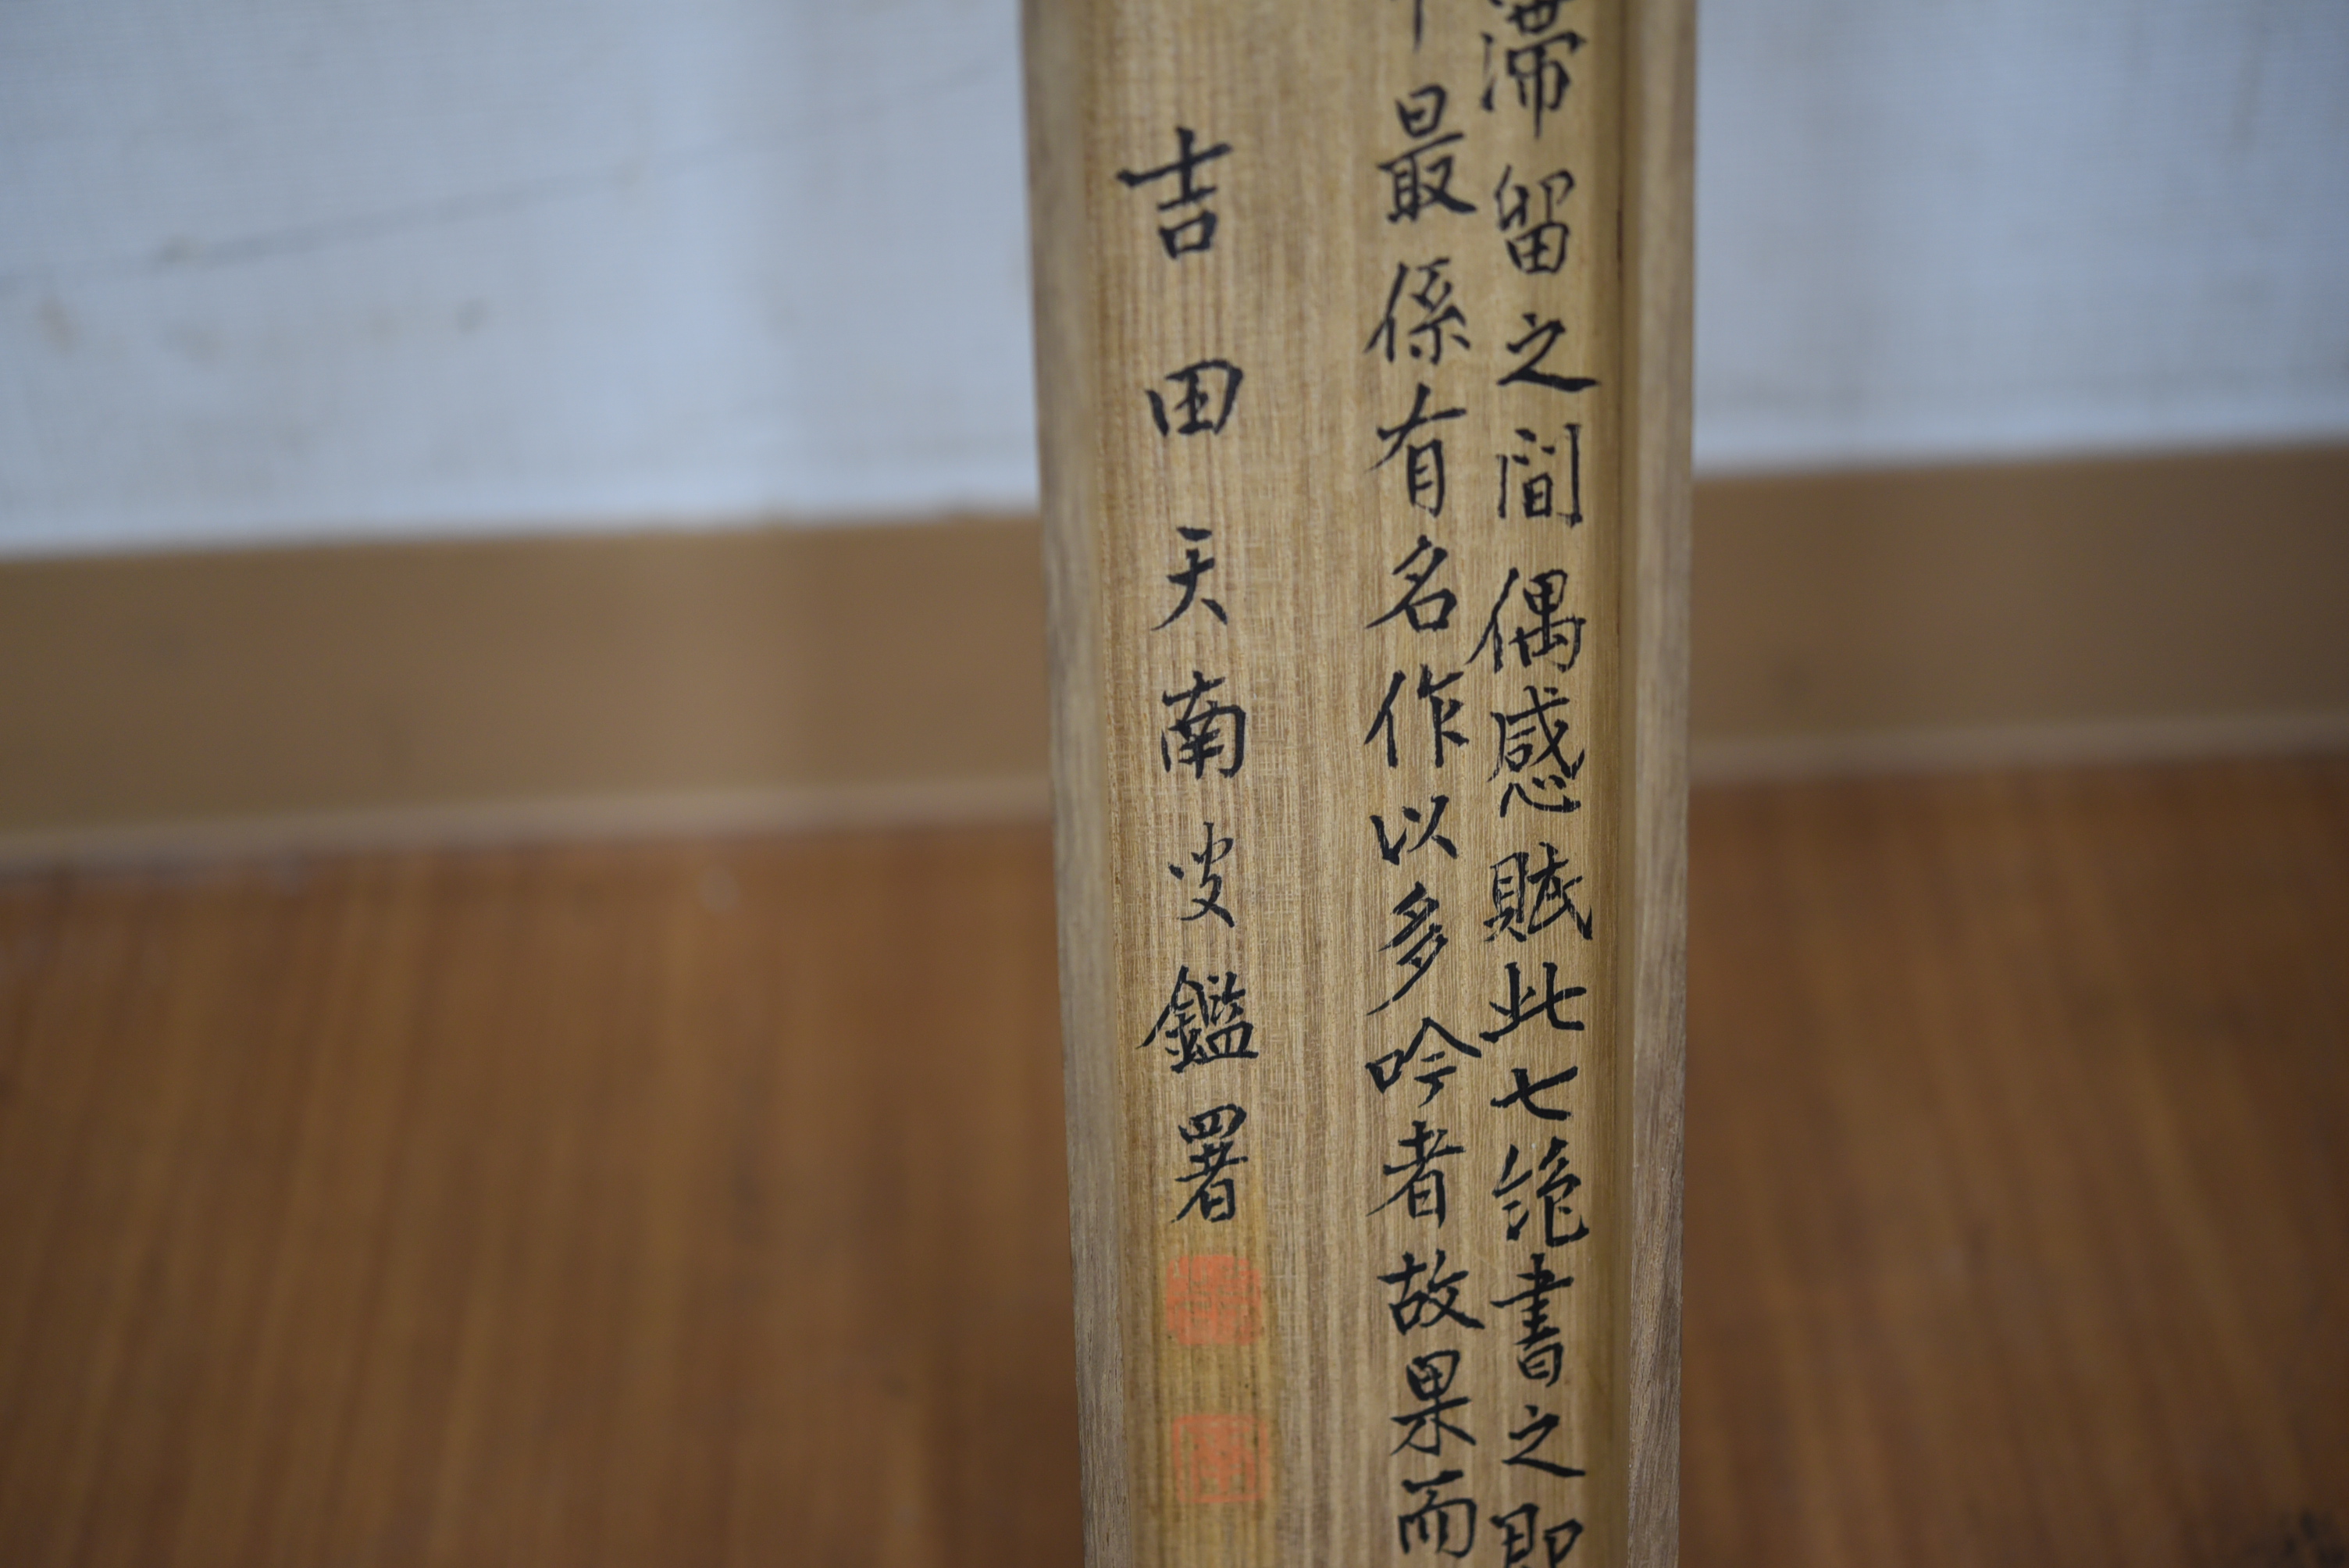 滞留之間偶感賦此七絶書之即
最係有名作以多吟者故果而
吉田天南叟鑑署